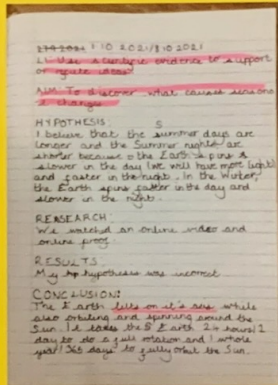 1 10 2021/8 10 2021
LI: Use scientific evidence to support
or refute ideas
AIM: To discover what causes seasons
changes
HYPOTHESIS
I believe that the summer days are
longer and the Summer nights are
shorter because the Earth spins
slower in the day (we will have more light)
and faster in the night. In the Winter,
the Earth spins faster in the day and
slower in the night.
RESEARCH
We watched an online video and
online
RESULTS
My hypothesis was incorrect
CONCLUSION:
The Earth tilts on it's axis while
also orbiting and spinning around the
Sun. It takes the Earth 24 hours/1
day to do a full rotation and 1 whole
year/365 days to fully orbit the Sun.